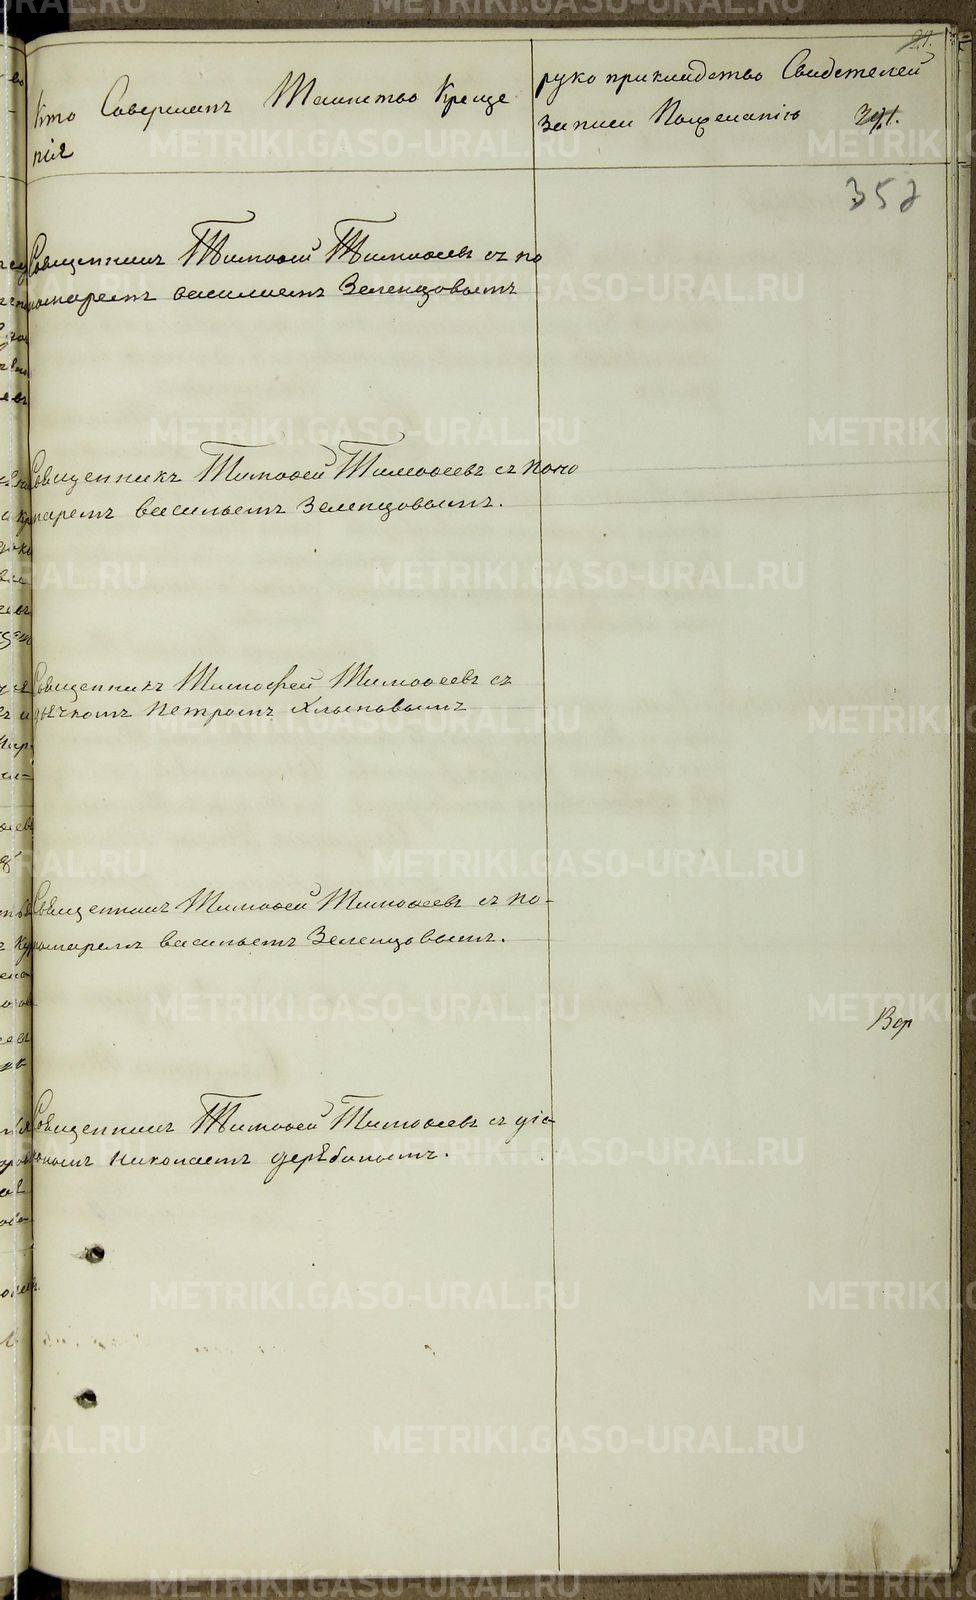 Кто Совершалъ Таинство Креще
нія
руко прикладство Свидетелей
Записи По желанію
352
Священникъ Тимоѳей Тимоѳеевъ съ по
номаремъ василиемъ Зеленцовымъ
Священникъ Тимоѳей Тимоѳеевъ съ поно
маремъ васильемъ Зеленцовымъ.
Священникъ Тимофей Тимоѳеевъ съ
дьячкомъ Петромъ Хлыновымъ
Священникъ Тимоѳей Тимоѳеевъ съ по-
номаремъ васильемъ Зеленцовымъ.
Священникъ Тимоѳей Тимоѳеевъ съ діа
кономъ николаемъ дерябинымъ.
METRIKI.GASO-URAL.RU